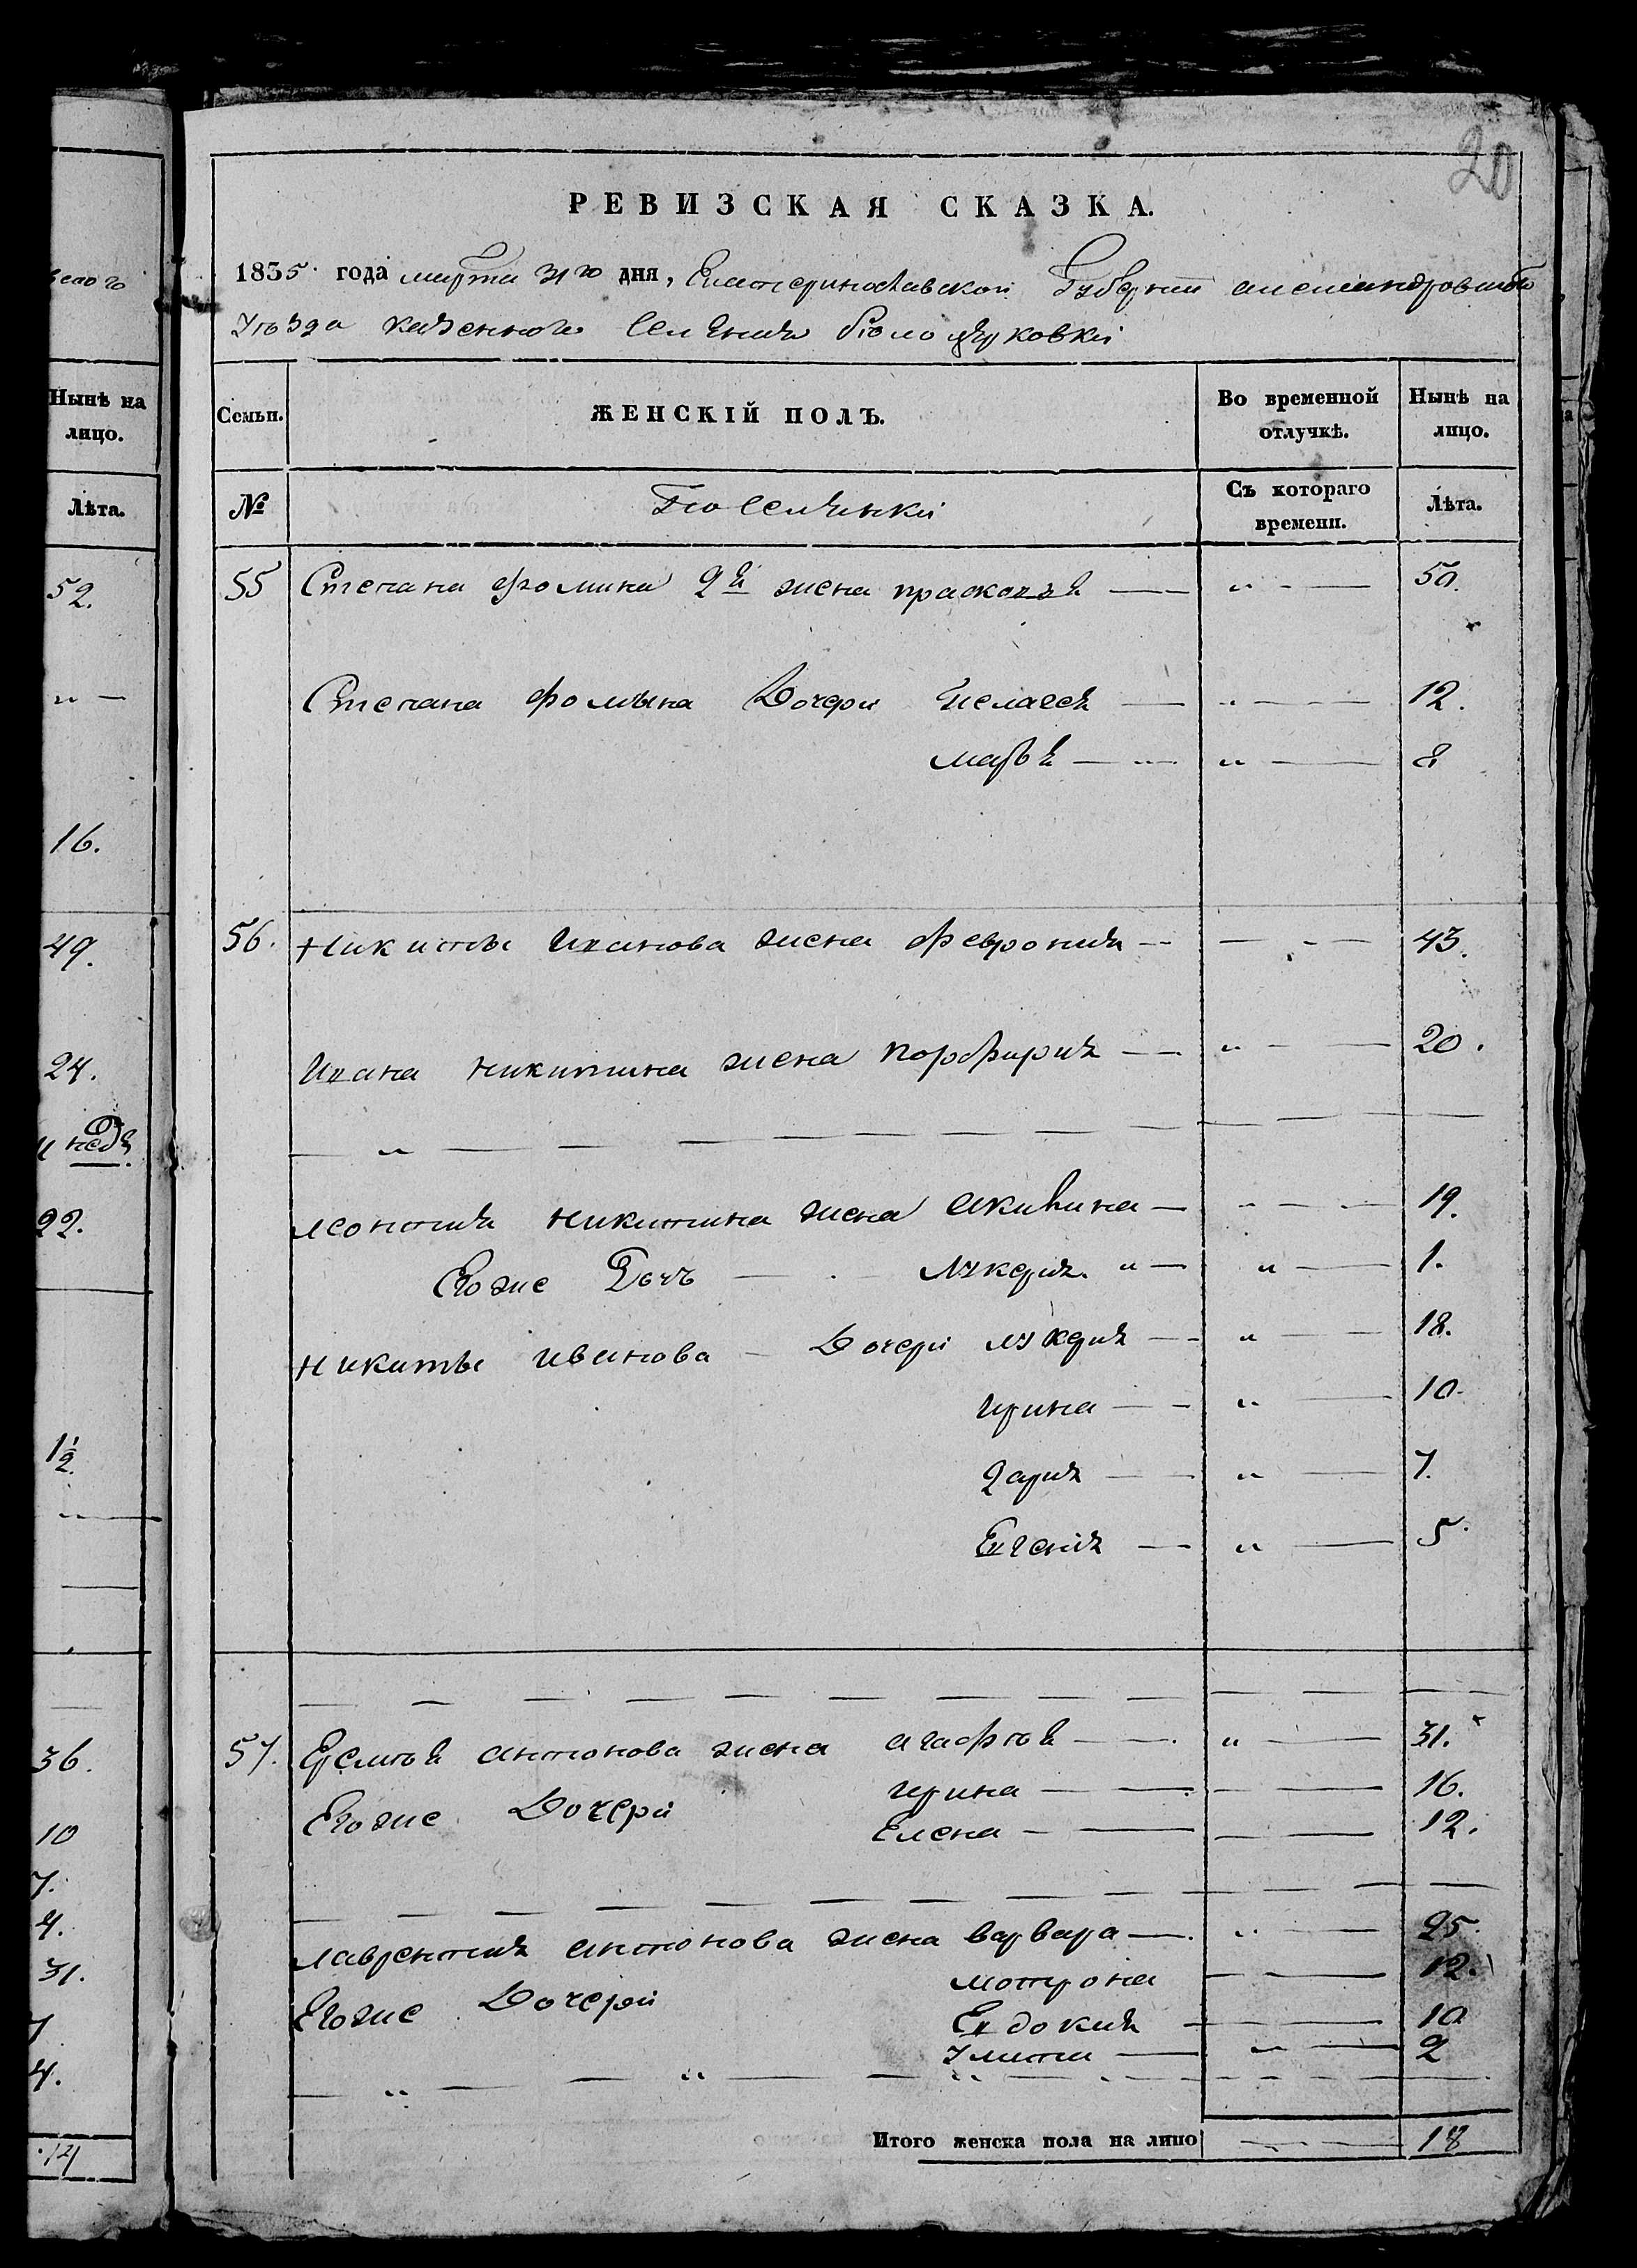 20
РЕВИЗСКАЯ СКАЗКА.
1835. года марта 31го дня, Екатеринославской Губернии александровскаго
Уѣзда казеннаго Селения бѣлоцерковки
Семьи.
ЖЕНСКІЙ ПОЛЪ.
Во временной отлучкѣ.
Нынѣ на лицо.
№
Поселянки
Съ котораго времени.
Лѣта.
55 Степана фомина 2й жена прасковя — " - — 50.
Степана фомына Дочери Пелагея — " - — 12.
марья — " — 8
56. Никиты Иванова жена феврония — — - — 43.
Ивана никитина жена порфирия — " - — 20.
леонтия никитина жена акилина — " - — 19.
Егоже Дочъ — лукерия " — " — 1.
никиты иванова — Дочери лукерия — " — 18.
ирина — " — 10.
дария — " — 7.
Евгения — " — 5.
57. Еремѣя антонова жена агафѣя — " — 31.
Егоже Дочери ирина — — — 16.
Елена — — — 12.
лаврентия антонова жена варвара — " — 25.
Егоже Дочери мотрона — 12.
Евдокия — 10
Улита — " — 2
Итого женска пола на лицо — 18
Нынѣ на лицо.
Лѣта.
52.
" —
16.
49.
24.
22.
1½.
36.
10
7.
4.
31.
7
4.
14